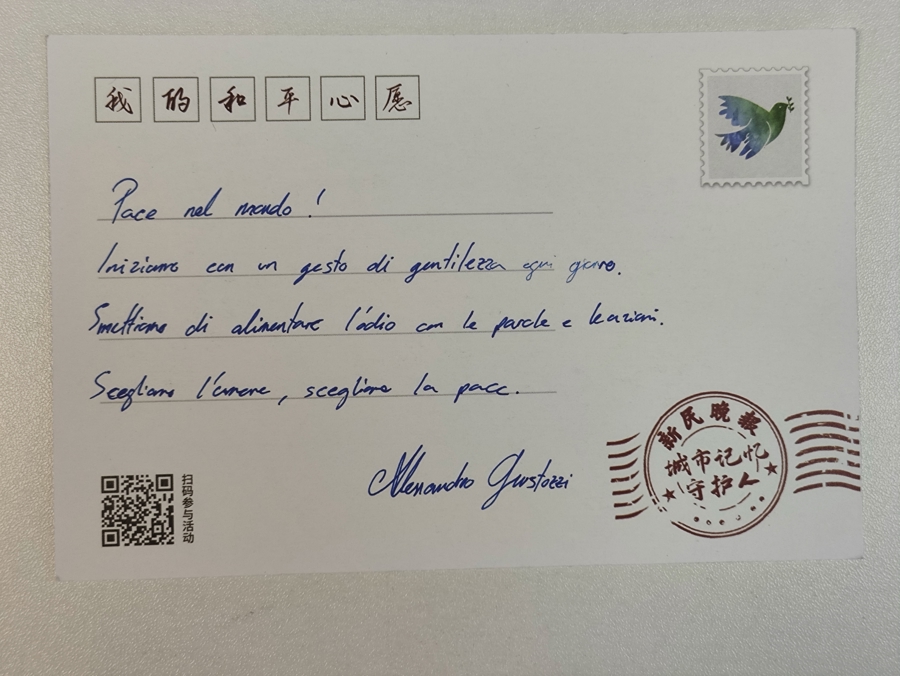 我的和平心愿
Pace nel mondo!
Iniziamo con un gesto di gentilezza ogni giorno.
Smettiamo di alimentare l'odio con le parole e le azioni.
Scegliamo l'amore, scegliamo la pace.
Alessandro Giustozzi
扫码参与活动
新民晚报
城市记忆
守护人